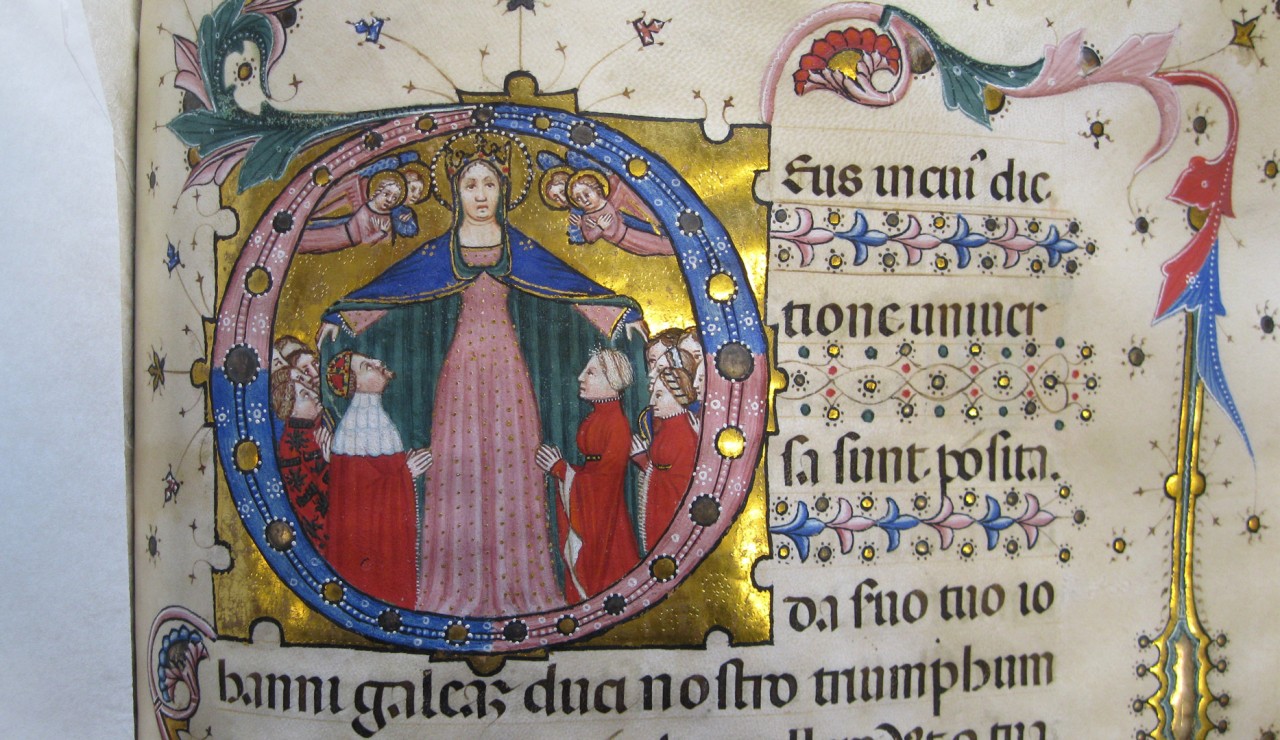 DEus in cuiu' dic
tione univer
sa sunt posita.
da suo tuo io
hanni galeaz duci nostro triumphum